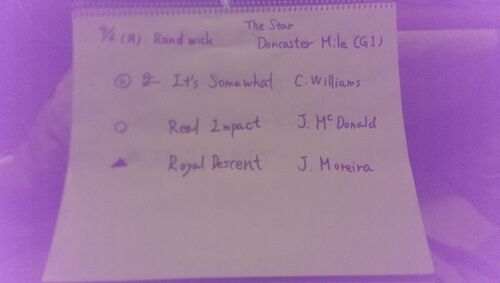 The Star
(A) Randwick Doncaster Mile (G1)
◎ It's Somewhat C. Williams
○ Real Impact J. McDonald
▲ Royal Descent J. Moreira